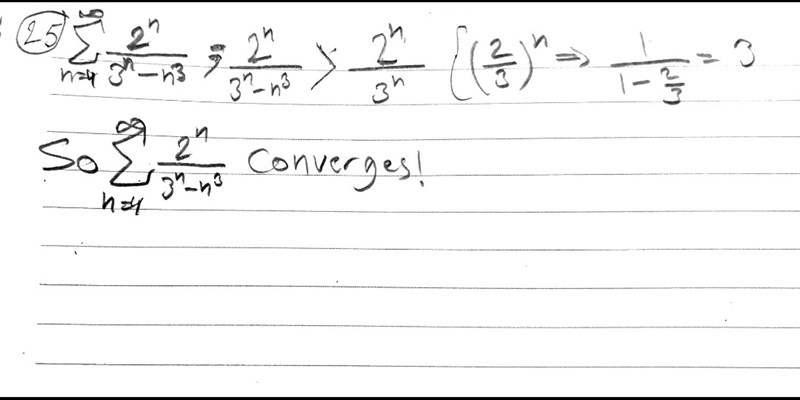 (25) ∞ Σ n=4 2^n / (3^n - n^3) ; 2^n / (3^n - n^3) > 2^n / 3^n { (2/3)^n ⇒ 1 / (1 - 2/3) = 3
So ∞ Σ n=4 2^n / (3^n - n^3) Converges!